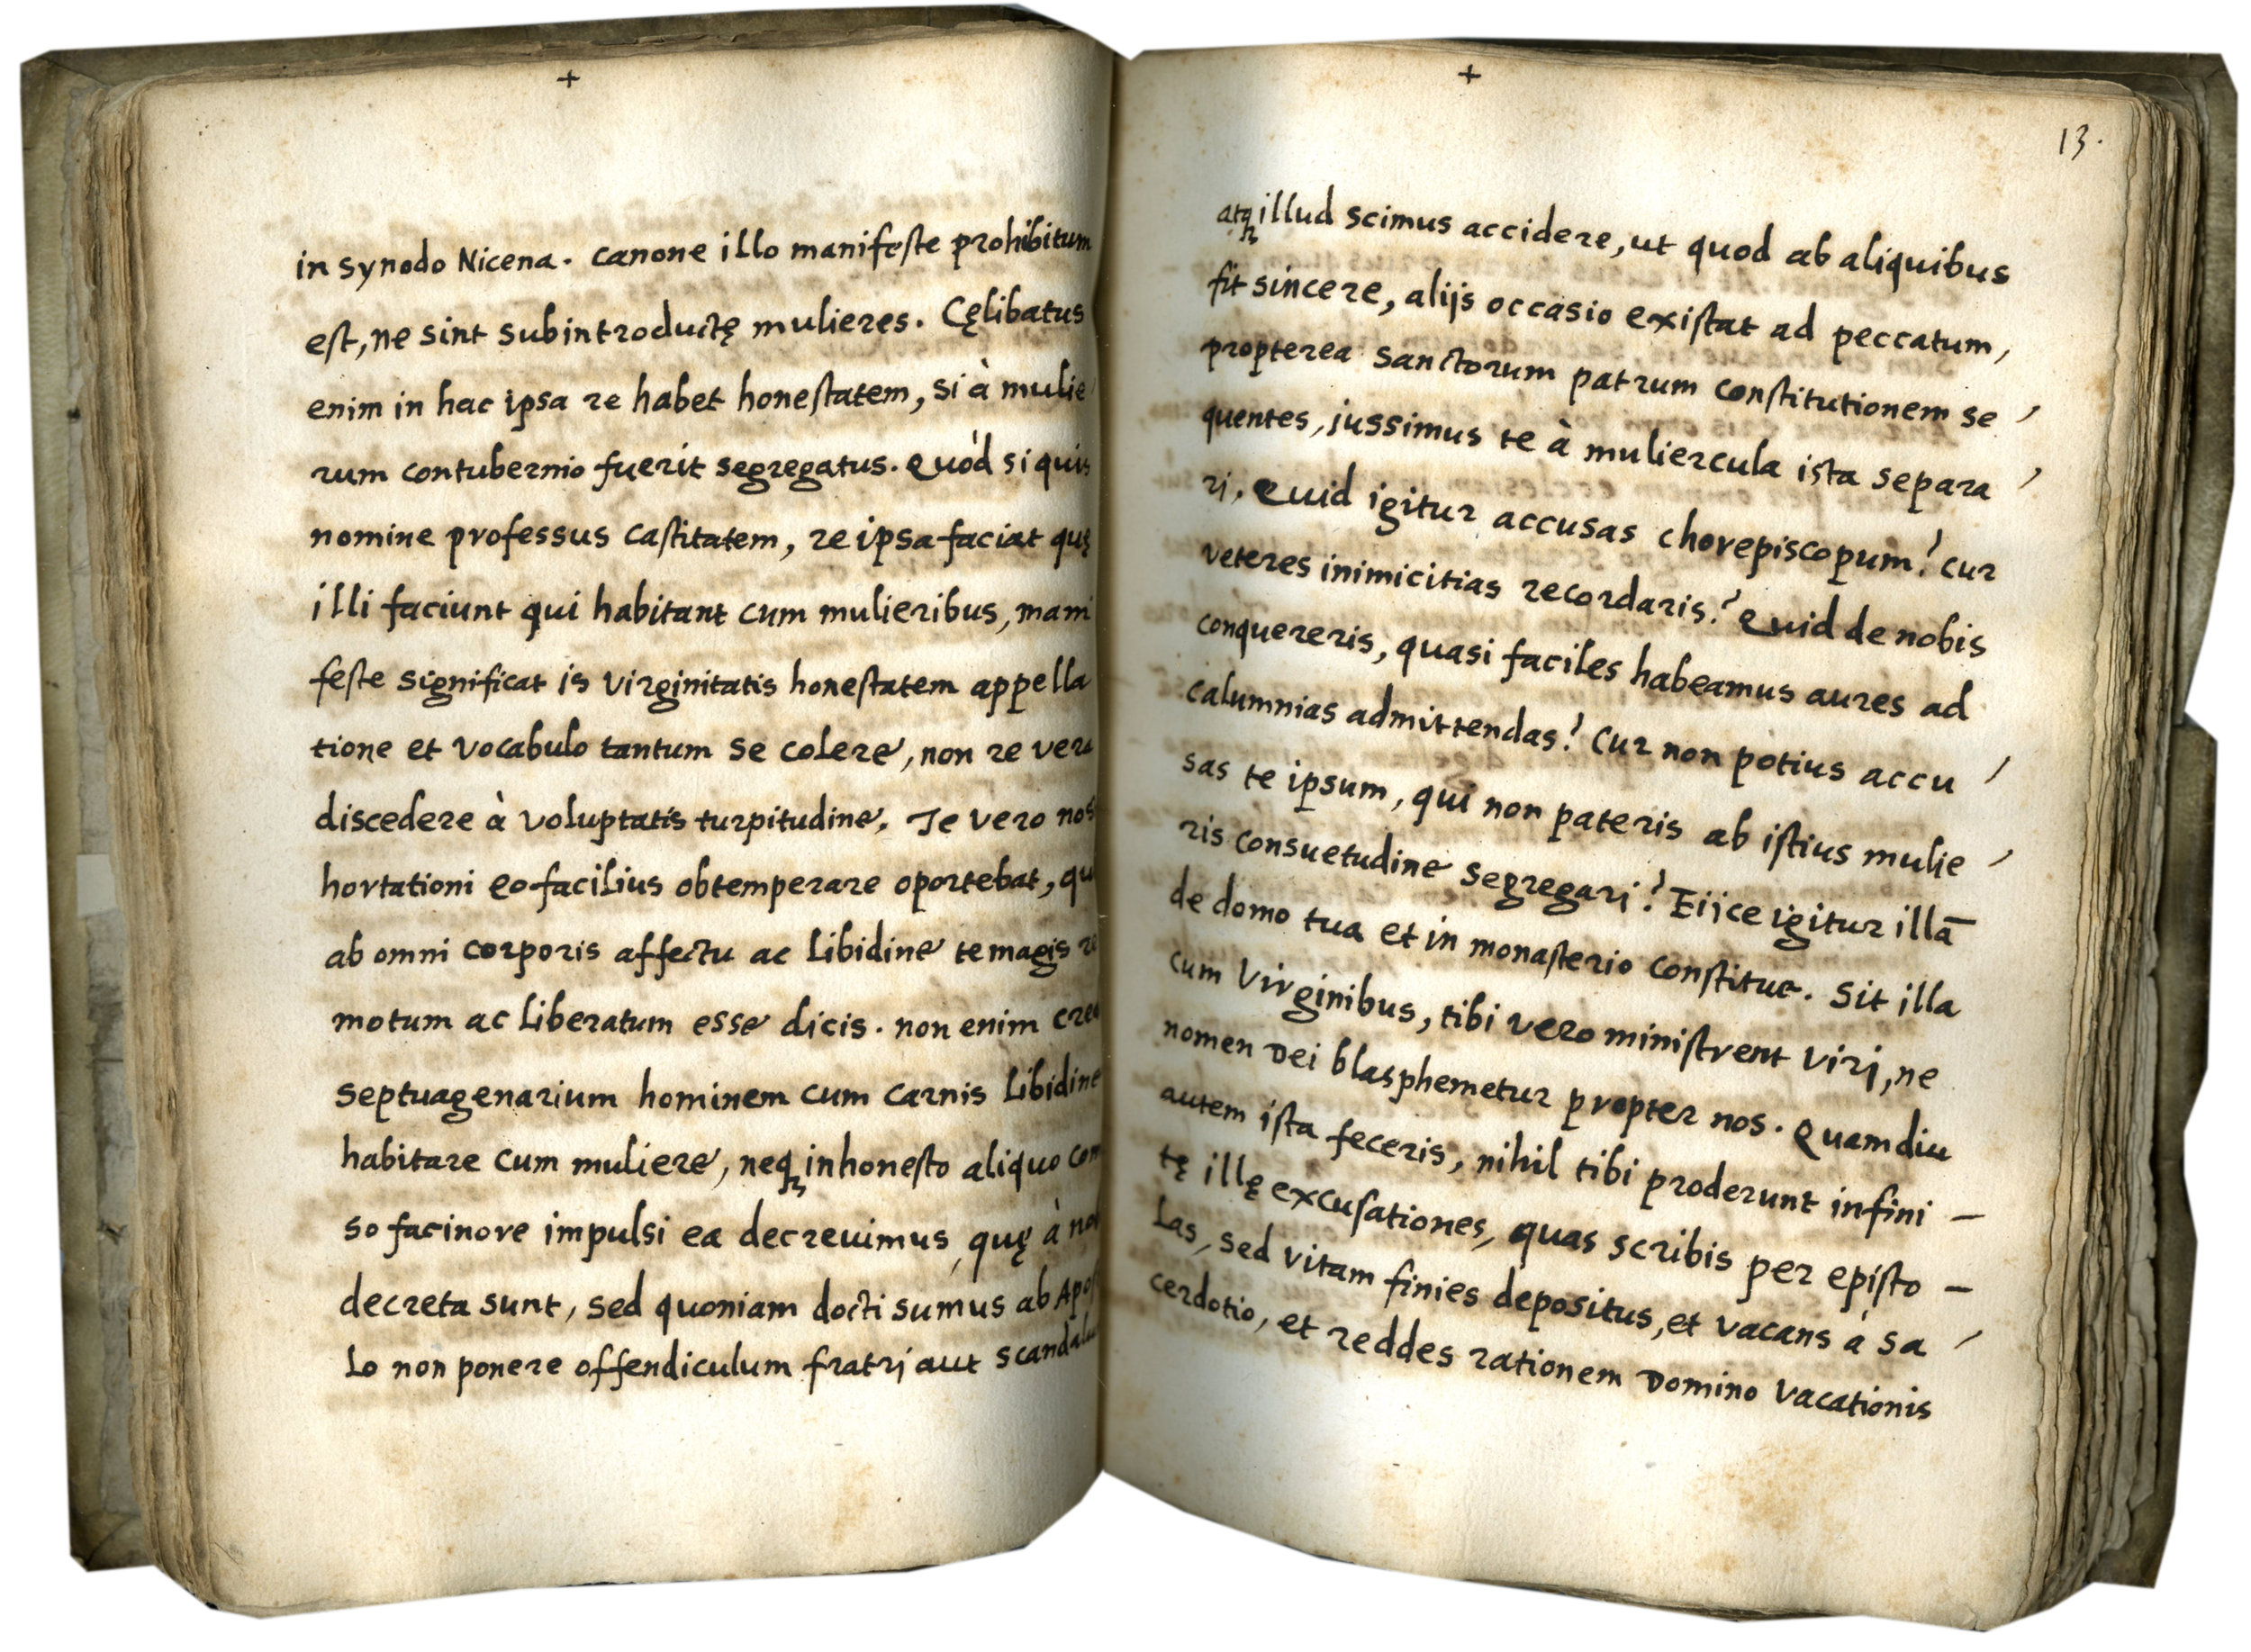 +
in synodo Nicena. canone illo manifeste prohibitum
est, ne sint subintroductę mulieres. Cęlibatus
enim in hac ipsa re habet honestatem, si à mulie
rum contubernio fuerit segregatus. Quòd si quis
nomine professus castitatem, re ipsa faciat quę
illi faciunt qui habitant cum mulieribus, mani
feste significat is virginitatis honestatem appella
tione et vocabulo tantum se colere, non re vera
discedere à voluptatis turpitudine. Te vero nos
hortationi eo facilius obtemperare oportebat, qu
ab omni corporis affectu ac libidine te magis re
motum ac liberatum esse dicis. non enim cre
septuagenarium hominem cum carnis libidine
habitare cum muliere, neqꝫ inhonesto aliquo com
so facinore impulsi ea decreuimus, quę à no
decreta sunt, sed quoniam docti sumus ab Apos
lo non ponere offendiculum fratri aut scandalu
+
13.
atqꝫ illud scimus accidere, ut quod ab aliquibus
fit sincere, alijs occasio existat ad peccatum,
propterea sanctorum patrum constitutionem se /
quentes, jussimus te à muliercula ista separa /
ri. Quid igitur accusas chorepiscopum? cur
veteres inimicitias recordaris? Quid de nobis
conquereris, quasi faciles habeamus aures ad
calumnias admittendas? cur non potius accu /
sas te ipsum, qui non pateris ab istius mulie /
ris consuetudine segregari? Eijce igitur illā
de domo tua et in monasterio constitue. Sit illa
cum virginibus, tibi vero ministrent viri, ne
nomen Dei blasphemetur propter nos. Quamdiu
autem ista feceris, nihil tibi proderunt infini –
tę illę excusationes, quas scribis per episto –
las, sed vitam finies depositus, et vacans à sa /
cerdotio, et reddes rationem Domino vacationis